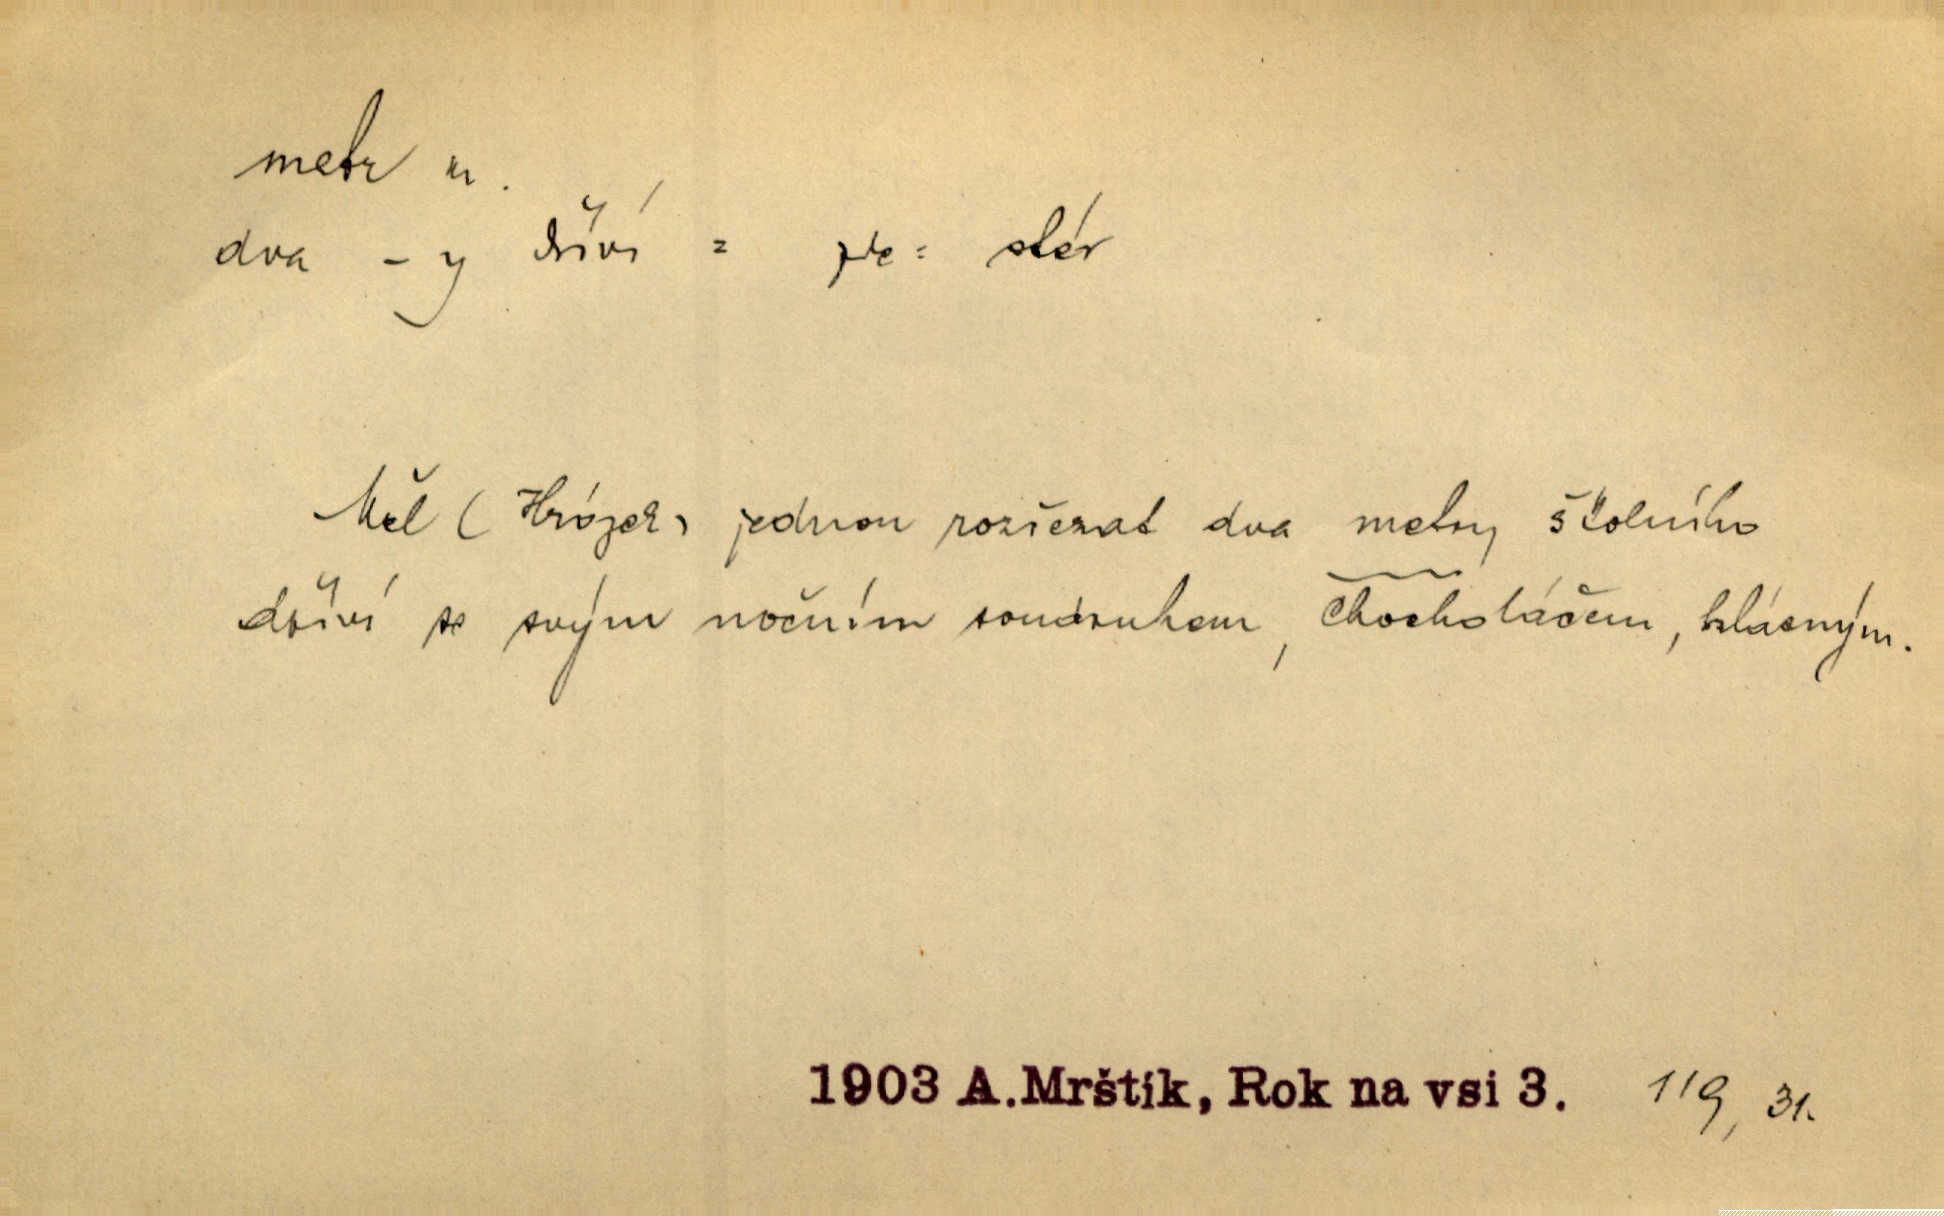 metr m.
dva -y dříví = zde = stér
Měl (Hrózek) jednou rozřezat dva metry školního
dříví se svým nočním soudruhem, Chocholáčem, hlásným.
1903 A.Mrštík, Rok na vsi 3. 119, 31.